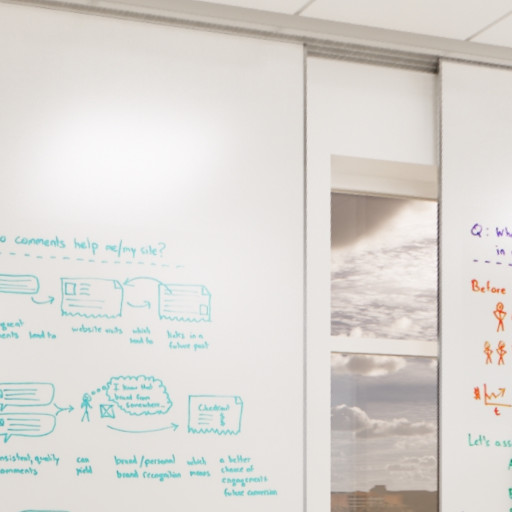 comments help me/my site?
lead to
website visits
which
lead to
links in a
future post
I know that
brand from
somewhere...
Checkout
quality
comments
can
yield
brand/personal
brand recognition
which
means
a better
chance of
engagement &
future conversion
Q: Wh
in
Before
$
t
Let's ass